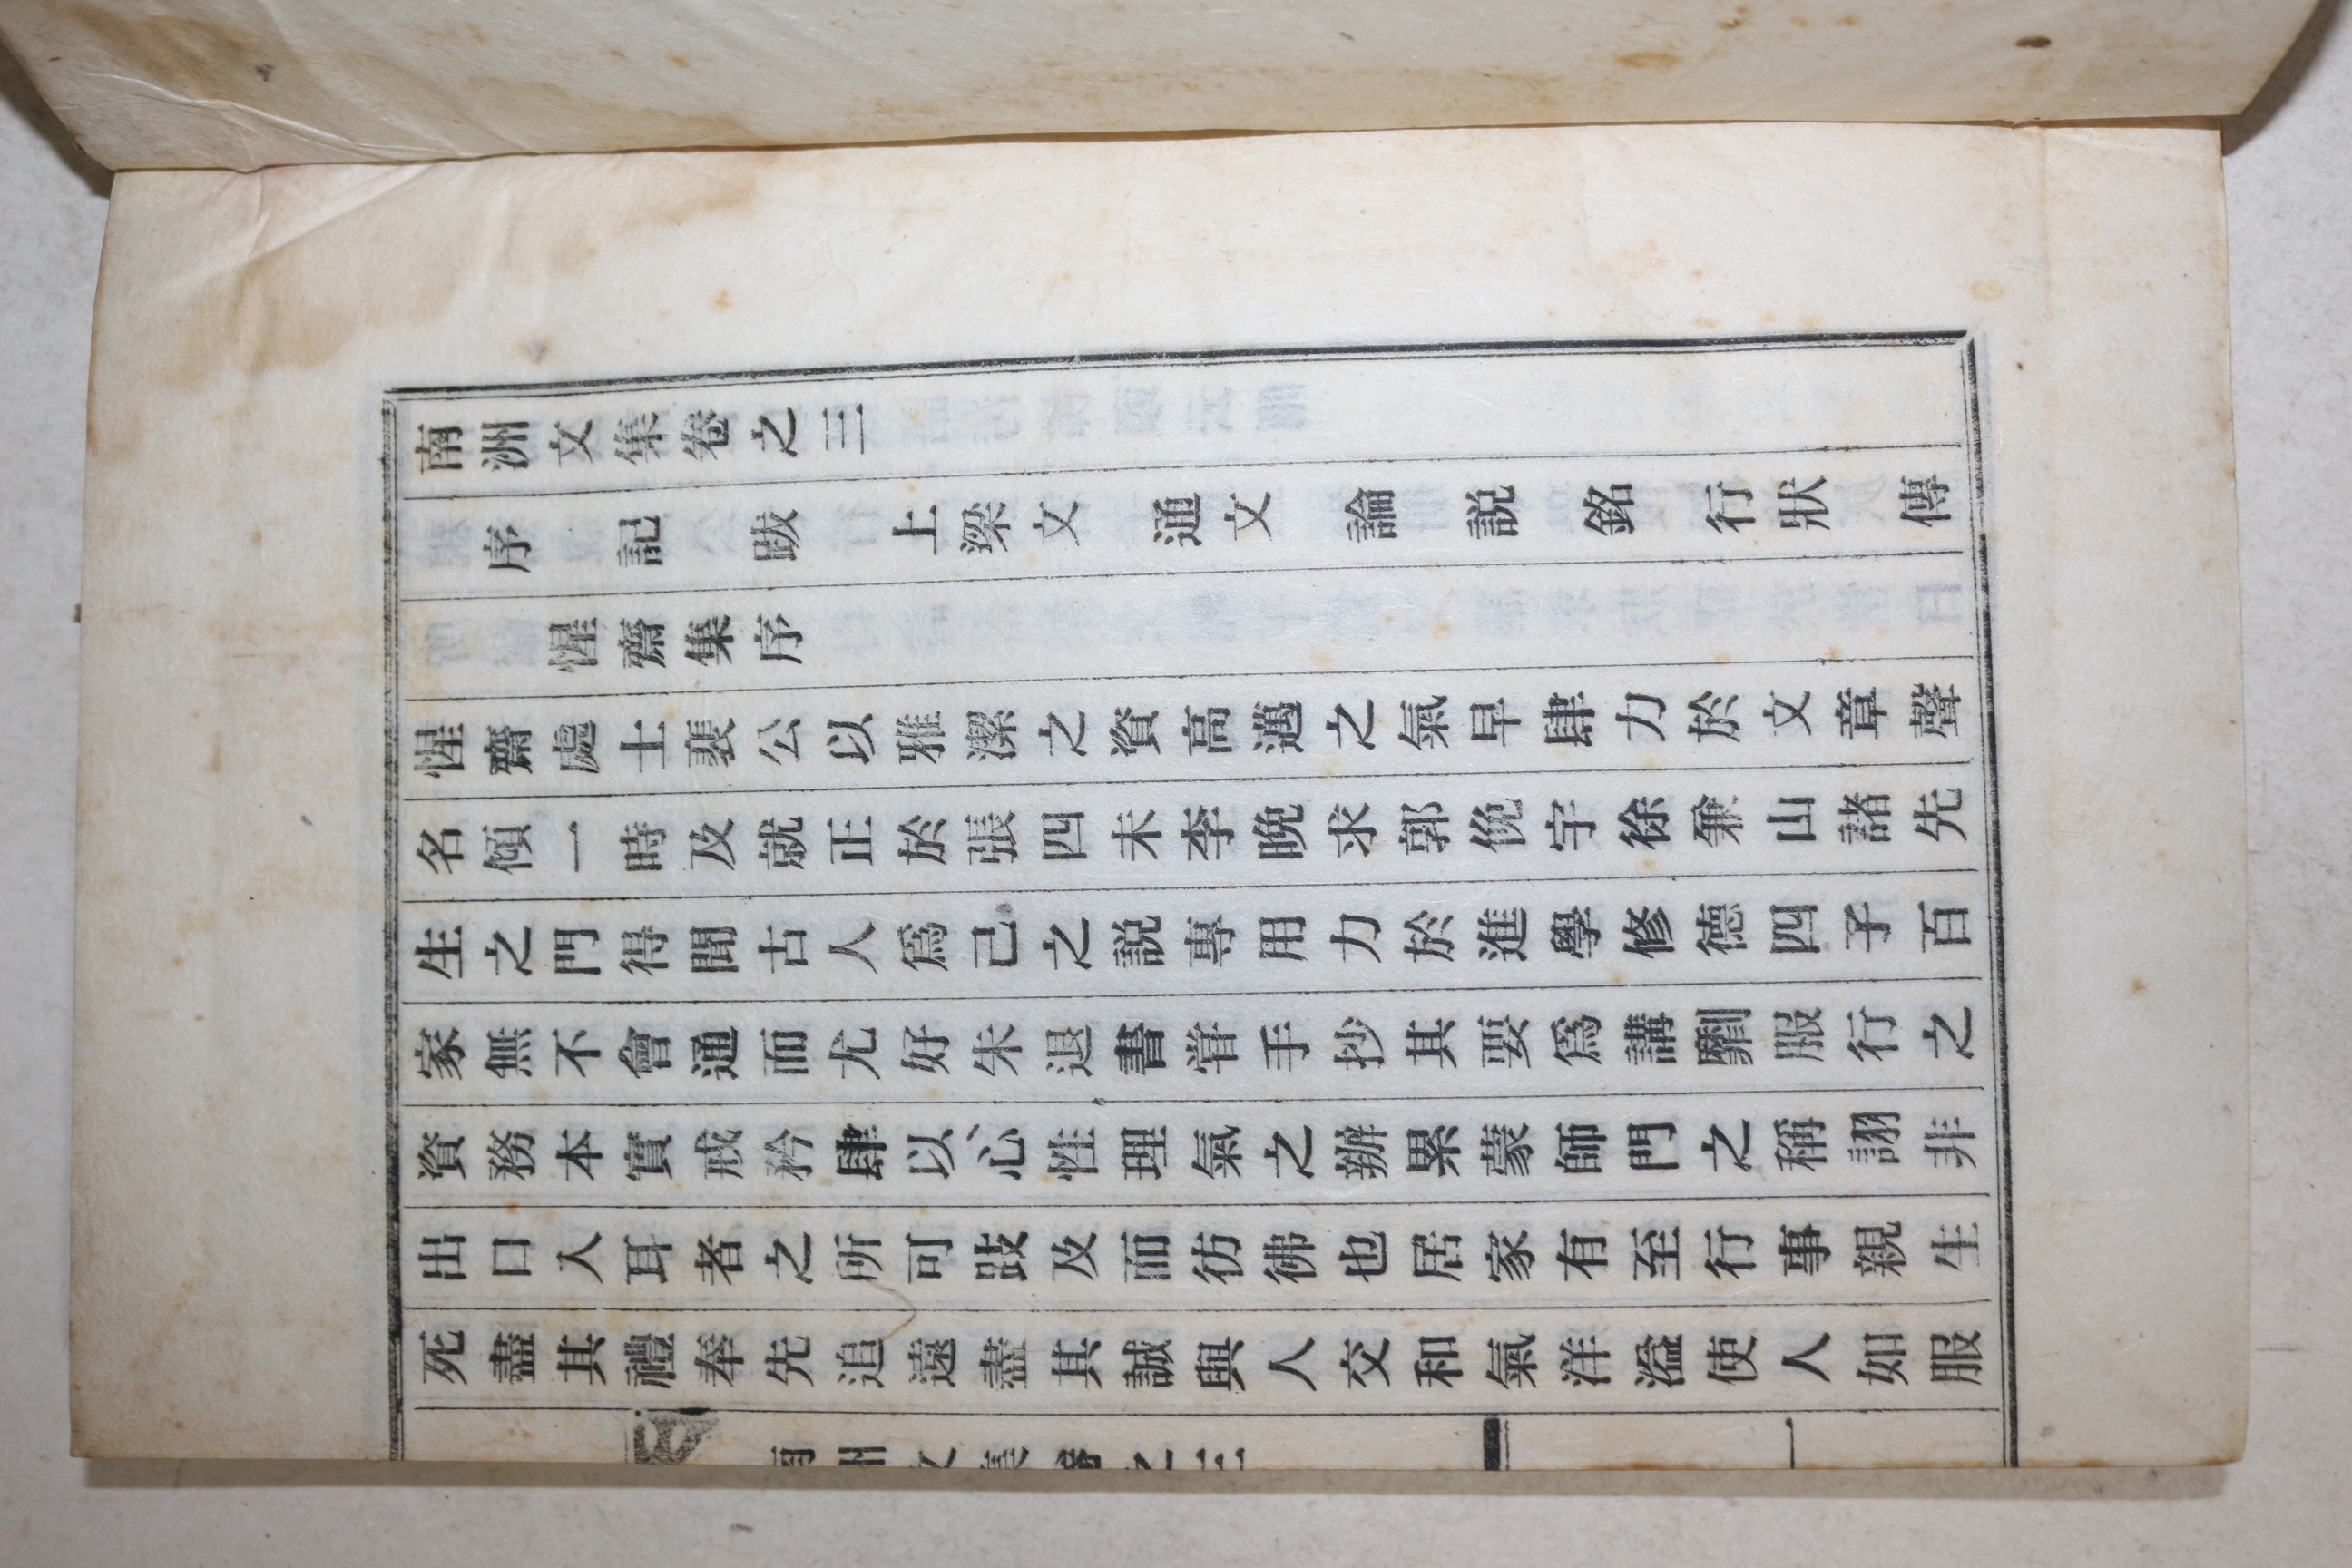 南洲文集卷之三
序 記 跋 上梁文 通文 論 説 銘 行狀 傳
惺齋集序
惺齋處士裵公以雅潔之資高邁之氣早肆力於文章聲
名傾一時及就正於張四未李晩求郭俛宇徐兼山諸先
生之門得聞古人爲己之説專用力於進學修德四子百
家無不會通而尤好朱退書甞手抄其要爲講劘服行之
資務本實戒矜肆以心性理氣之辦累蒙師門之稱詡非
出口入耳者之所可跂及而彷彿也居家有至行事親生
死盡其禮奉先追遠盡其誠與人交和氣洋溢使人如服
南洲文集卷之三 一